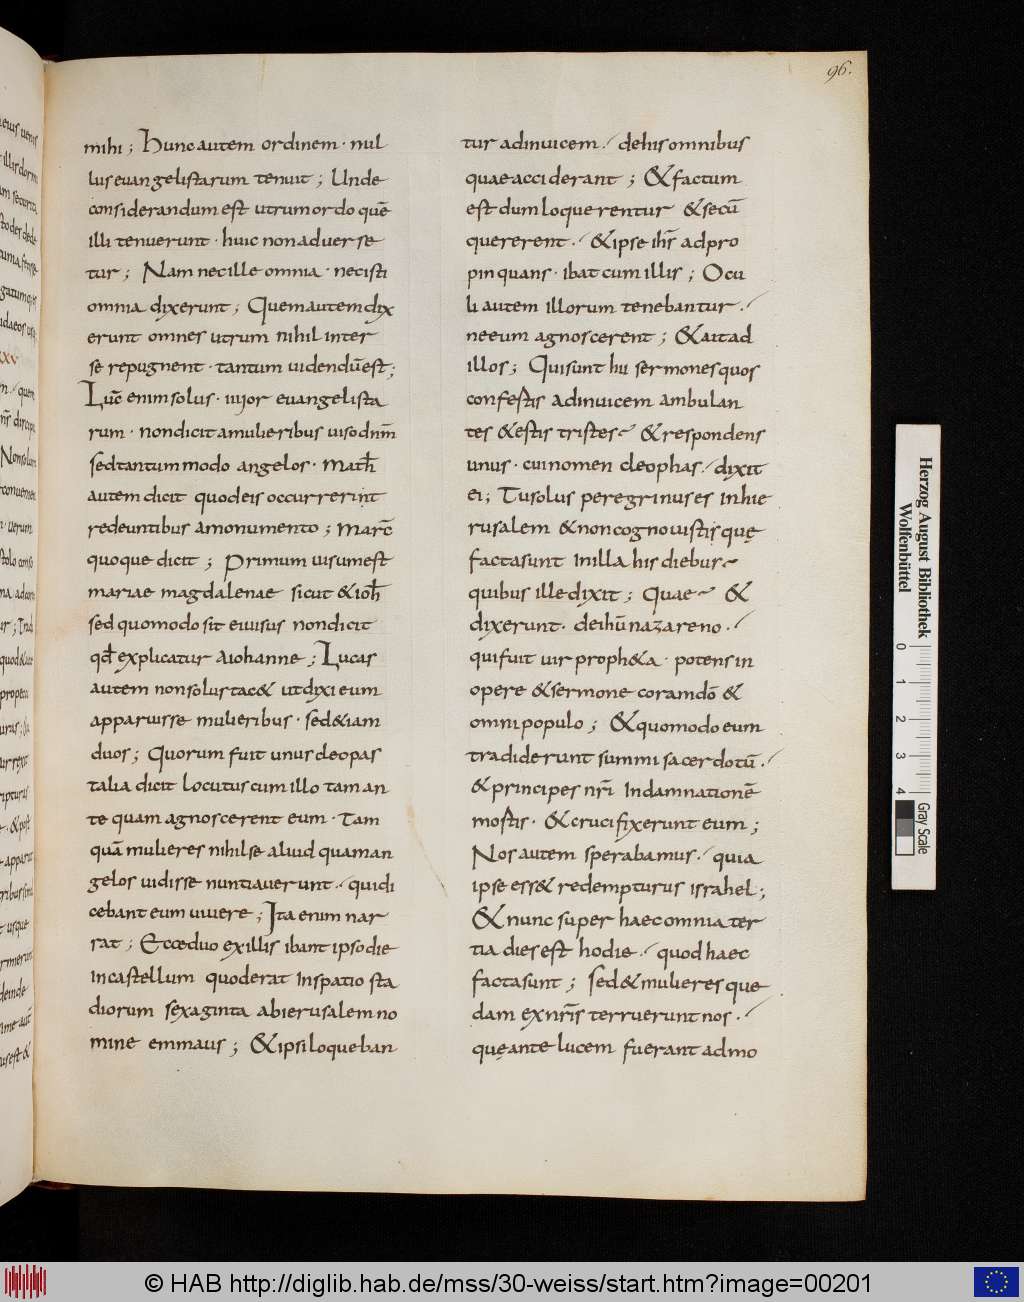 96.
mihi ; Hunc autem ordinem · nul
lus euangelistarum tenuit ; Unde
considerandum est utrum ordo quē
illi tenuerunt · huic non aduerse
tur ; Nam nec ille omnia · nec isti
omnia dixerunt ; Quem autem dix
erunt omnes utrum nihil inter
se repugnent · tantum uidendū est ;
Luc̄ enim solus · iiijor euangelista
rum · non dicit a mulieribus uiso dnm̄
sed tantummodo angelos · Math̄
autem dicit quod eis occurrerint
redeuntibus a monumento ; Marc̄
quoque dicit ; Primum uisum est
mariae magdalenae sicut & ioh̄
sed quomodo sit ei uisus non dicit
qd̄ explicatur a iohanne ; Lucas
autem non solus tac& ut dixi eum
apparuisse mulieribus · sed & iam
duos ; Quorum fuit unus cleopas
talia dicit locutus cum illo tam an
te quam agnoscerent eum · Tam
quā mulieres nihil se aliud quam an
gelos uidisse nuntiauerunt · quidi
cebant eum uiuere ; Ita enim nar
rat ; Ecce duo ex illis ibant ipso die
in castellum quod erat in spatio sta
diorum sexaginta ab ierusalem no
mine emmaus ; & ipsi loqueban
tur ad inuicem · de his omnibus
quae acciderant ; & factum
est dum loquerentur & secū
quererent · & ipse ihs̄ adpro
pinquans · ibat cum illis ; Ocu
li autem illorum tenebantur ·
ne eum agnoscerent ; & ait ad
illos ; Qui sunt hii sermones quos
confestis ad inuicem ambulan
tes & estis tristes & respondens
unus · cui nomen cleophas · dixit
ei ; Tu solus peregrinus es in hie
rusalem & non cognouistis quę
facta sunt in illa his diebus
quibus ille dixit ; Quae &
dixerunt · de ihū nazareno ·
qui fuit uir proph&a · potens in
opere & sermone coram dō &
omni populo ; & quomodo eum
tradiderunt summi sacerdotū ·
& principes nr̄i In damnationē
mostis · & crucifixerunt eum ;
Nos autem sperabamus · quia
ipse ess& redempturus israhel ;
& nunc super haec omnia ter
tia dies est hodie · quod haec
facta sunt ; Sed & mulieres que
dam ex nr̄is terruerunt nos ·
quę ante lucem fuerant ad mo
Herzog August Bibliothek
Wolfenbüttel
0 1 2 3 4
Gray Scale
© HAB http://diglib.hab.de/mss/30-weiss/start.htm?image=00201